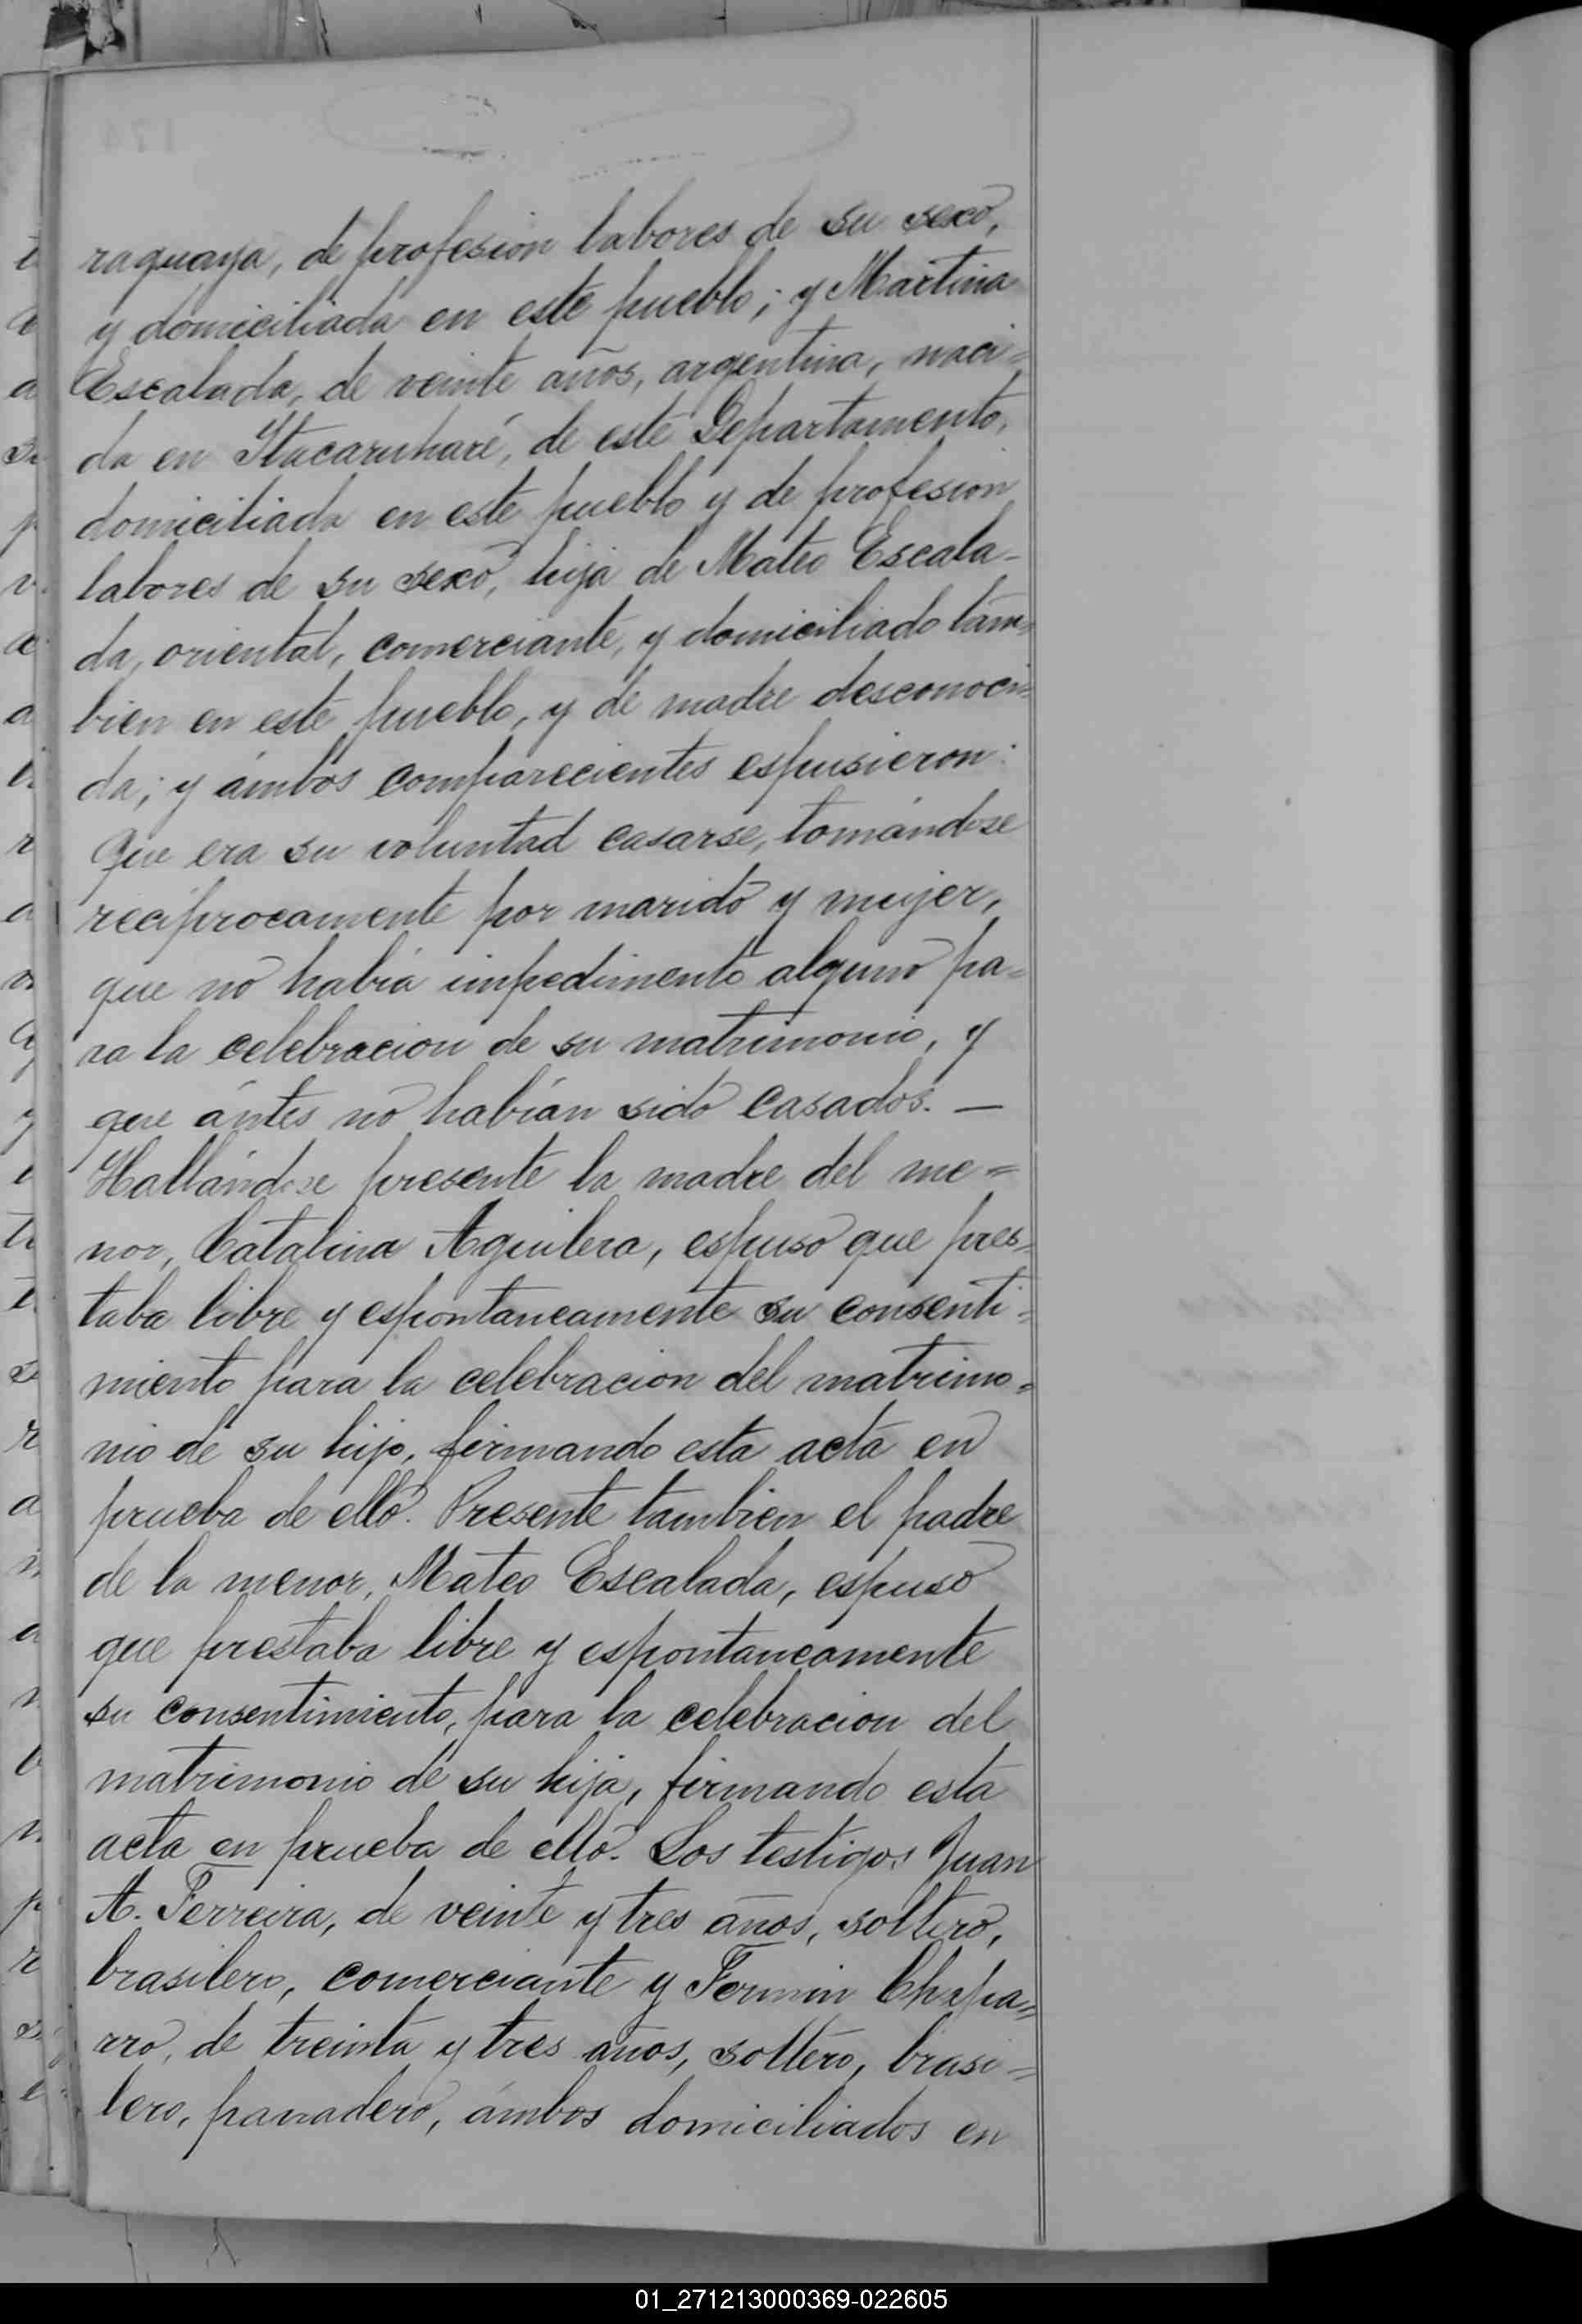 raguaya, de profesion labores de su sexo,
y domiciliada en este pueblo; y Martina
Escalada, de veinte años, argentina, naci=
da en Itacaruharé, de este Departamento,
domiciliada en este pueblo y de profesion
labores de su sexo, hija de Mateo Escala-
da, oriental, comerciante, y domiciliado tam=
bien en este pueblo, y de madre desconoci=
da; y ámbos comparecientes espusieron:
Que era su voluntad casarse, tomándose
reciprocamente por marido y mujer,
que no había impedimento alguno pa=
ra la celebracion de su matrimonio, y
que ántes no habían sido casados. —
Hallándose presente la madre del me=
nor, Catalina Aguilera, espuso que pres=
taba libre y espontaneamente su consenti=
miento para la celebracion del matrimo=
nio de su hijo, firmando esta acta en
prueba de ello. Presente tambien el padre
de la menor, Mateo Escalada, espuso
que prestaba libre y espontaneamente
su consentimiento, para la celebracion del
matrimonio de su hija, firmando esta
acta en prueba de ello. Los testigos Juan
A. Ferreira, de veinte y tres años, soltero,
brasilero, comerciante y Fermin Chapa=
rro, de treinta y tres años, soltero, brasi=
lero, panadero, ámbos domiciliados en
01_271213000369-022605